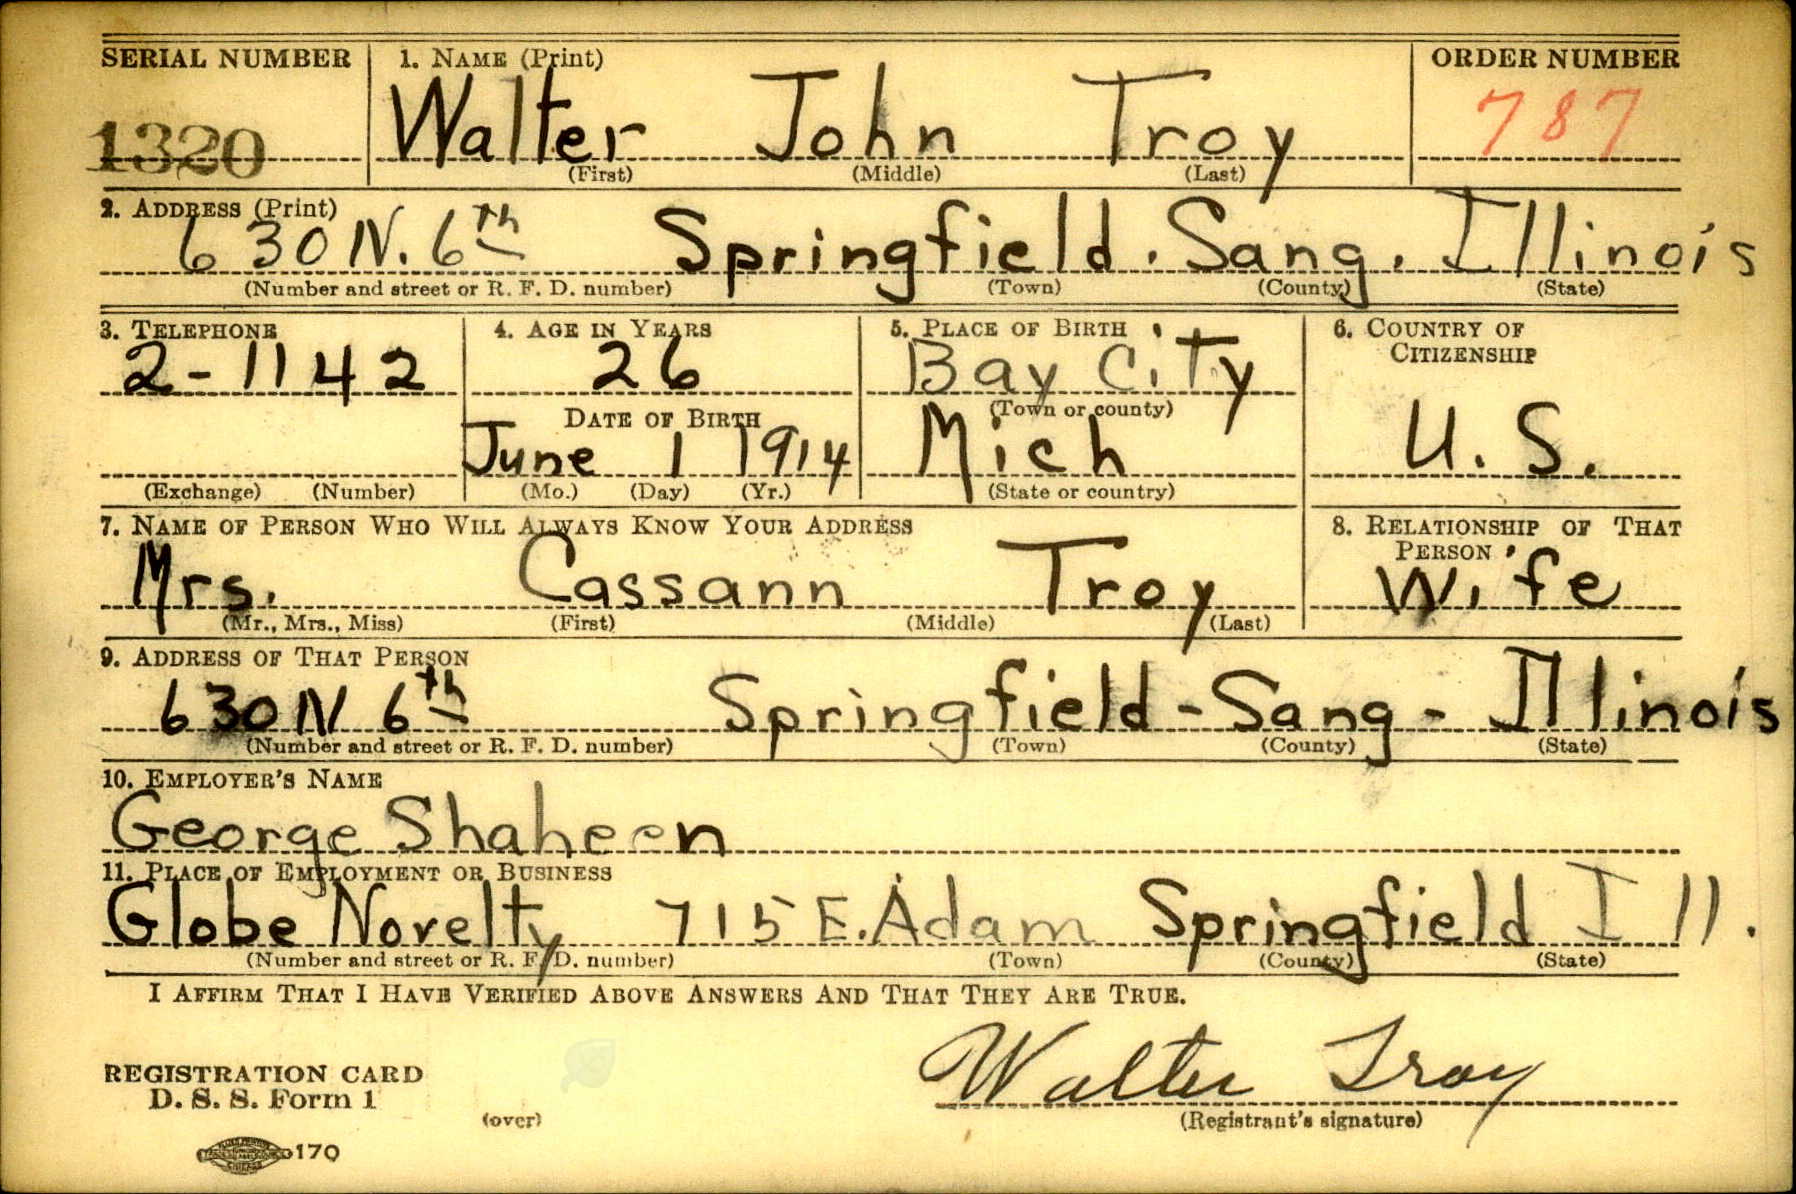 SERIAL NUMBER 1. NAME (Print) ORDER NUMBER
1320 Walter John Troy 787
(First) (Middle) (Last)
2. ADDRESS (Print)
630 N. 6th Springfield. Sang. Illinois
(Number and street or R. F. D. number) (Town) (County) (State)
3. TELEPHONE 4. AGE IN YEARS 5. PLACE OF BIRTH 6. COUNTRY OF
CITIZENSHIP
2-1142 26 Bay City
DATE OF BIRTH (Town or county)
June 1 1914 Mich U. S.
(Exchange) (Number) (Mo.) (Day) (Yr.) (State or country)
7. NAME OF PERSON WHO WILL ALWAYS KNOW YOUR ADDRESS 8. RELATIONSHIP OF THAT
PERSON
Mrs. Cassann Troy Wife
(Mr., Mrs., Miss) (First) (Middle) (Last)
9. ADDRESS OF THAT PERSON
630 N 6th Springfield - Sang - Illinois
(Number and street or R. F. D. number) (Town) (County) (State)
10. EMPLOYER'S NAME
George Shaheen
11. PLACE OF EMPLOYMENT OR BUSINESS
Globe Novelty 715 E. Adam Springfield Ill.
(Number and street or R. F. D. number) (Town) (County) (State)
I AFFIRM THAT I HAVE VERIFIED ABOVE ANSWERS AND THAT THEY ARE TRUE.
Walter Troy
REGISTRATION CARD
D. S. S. Form 1
(over) (Registrant's signature)
170